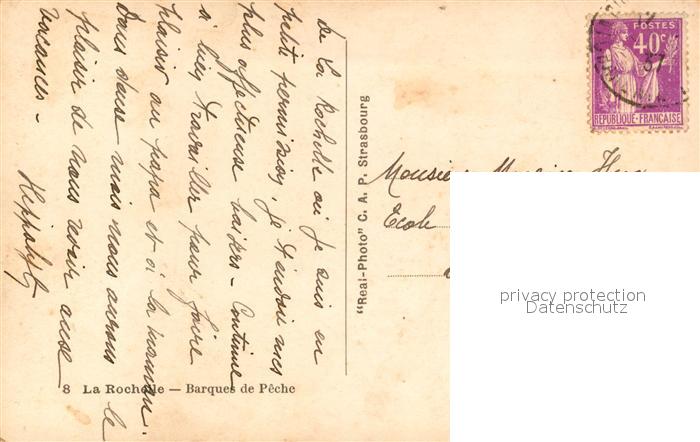 De La Rochelle où je suis en
petite permission, je t'envoie mes
plus affectueux baisers - Continue
à bien travailler pour faire
plaisir au papa et à la maman.
Dans deux mois nous aurons le
plaisir de nous revoir aux
vacances -
Hippolyte
8 La Rochelle — Barques de Pêche
"Real-Photo" C. A. P. Strasbourg
POSTES
40c
37
REPUBLIQUE-FRANÇAISE
Monsieur
Ecole
privacy protection
Datenschutz